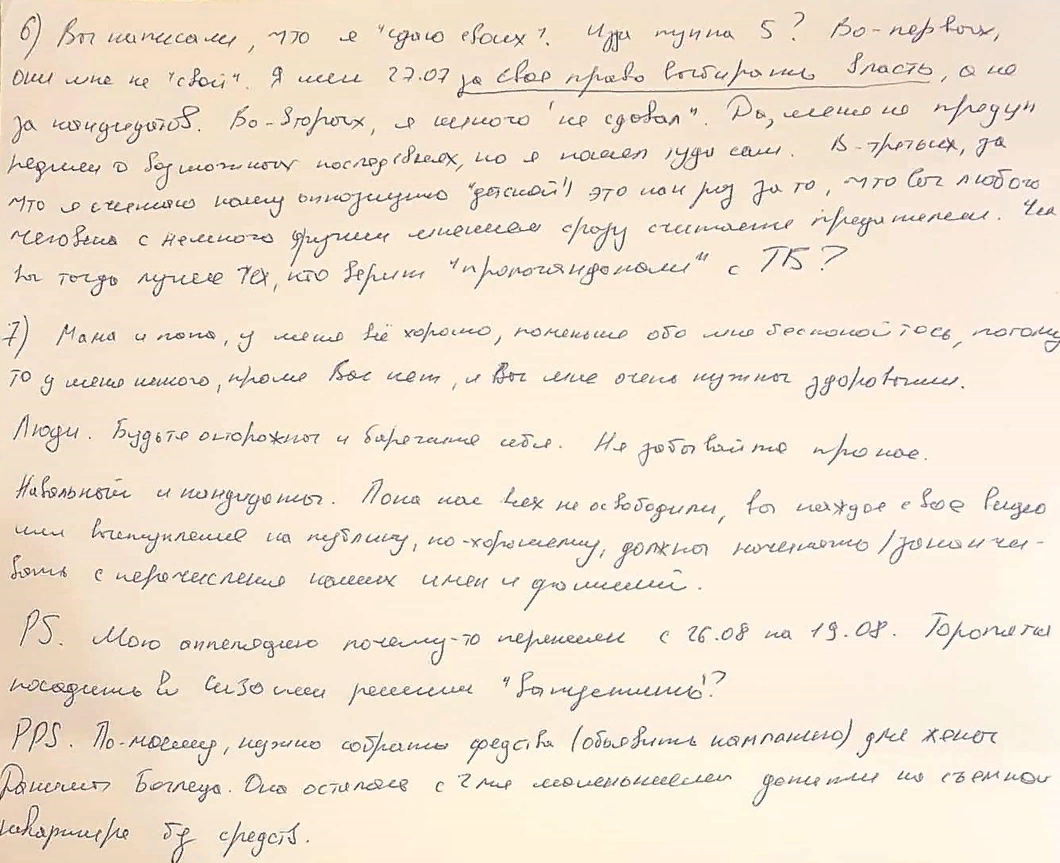 6) Вы написали, что я "сдаю своих". Из-за пункта 5? Во-первых,
они мне не "свои". Я шел 27.07 за свое право выбирать власть, а не
за кандидатов. Во-вторых, я никого "не сдавал". Да, меня не предуп
редили о возможных последствиях, но я пошел туда сам. В-третьих, за
что я считаю нашу оппозицию "детской", это как раз за то, что вы любого
человека с немного другим мнением сразу считаете предателем. Чем
вы тогда лучше тех, кто верит "пропагандонами" с ТВ?
7) Мама и папа, у меня всё хорошо, поменьше обо мне беспокойтесь, потому
то у меня никого, кроме Вас нет, и Вы мне очень нужны здоровыми.
Люди. Будьте осторожны и берегите себя. Не забывайте про нас.
Навальный и кандидаты. Пока нас всех не освободили, вы каждое свое видео
или выступление на публику, по-хорошему, должны начинать/заканчи-
вать с перечисления наших имен и фамилий.
PS. Мою аппеляцию почему-то перенесли с 26.08 на 19.08. Торопятся
посадить в СИЗО или решили "выпустить"?
PPS. По-моему, нужно собрать средства (объявить кампанию) для жены
Даниила Беглеца. Она осталась с 2мя маленькими детьми на съемной
квартире без средств.